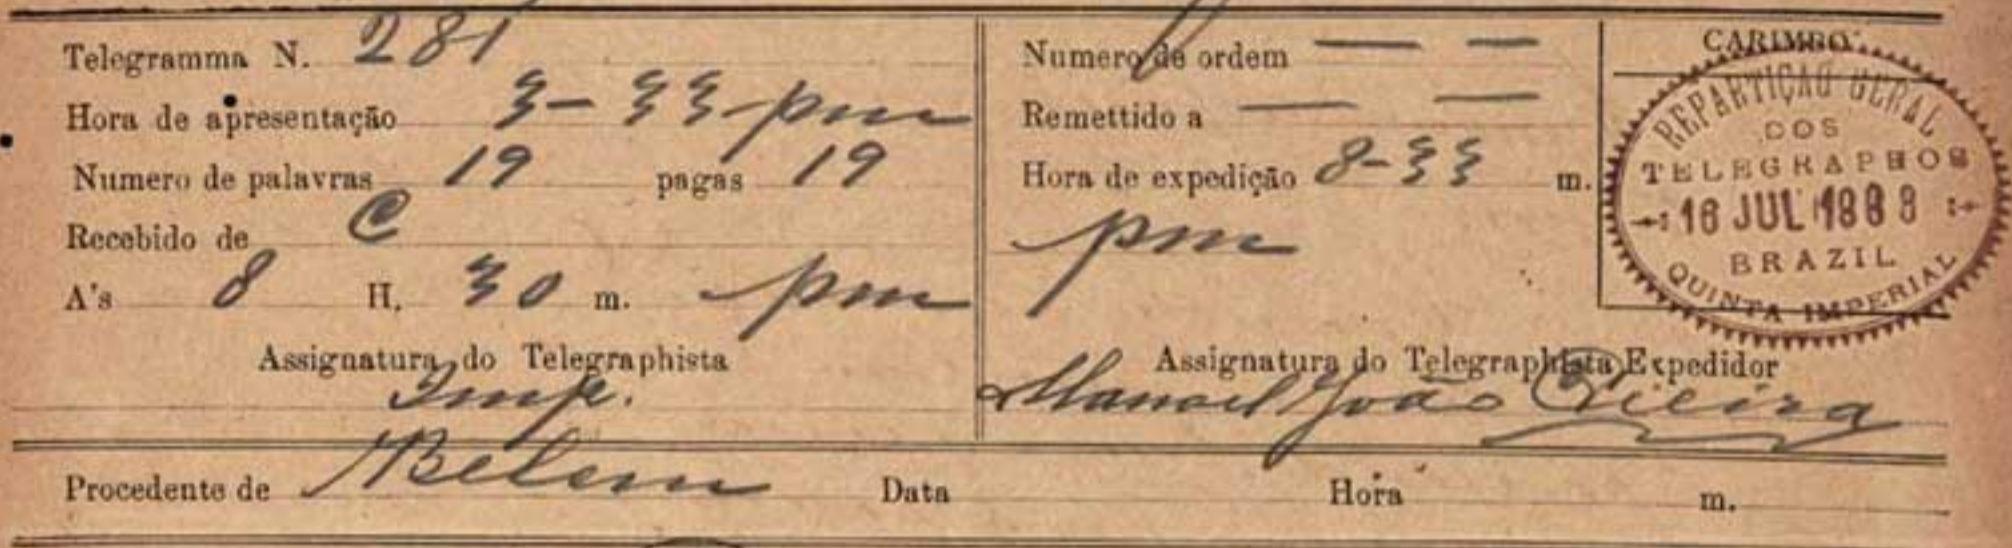 Telegramma N. 281
Hora de apresentação 3-33 pm
Numero de palavras 19 pagas 19
Recebido de C
A's 8 H. 30 m. pm
Assignatura do Telegraphista
Imp.
Numero de ordem — —
Remettido a — —
Hora de expedição 8-33 m.
pm
Assignatura do Telegraphista Expedidor
Manoel João Vieira
CARIMBO
REPARTIÇÃO GERAL
DOS
TELEGRAPHOS
16 JUL 1888
BRAZIL
QUINTA IMPERIAL
Procedente de Belem Data Hora m.